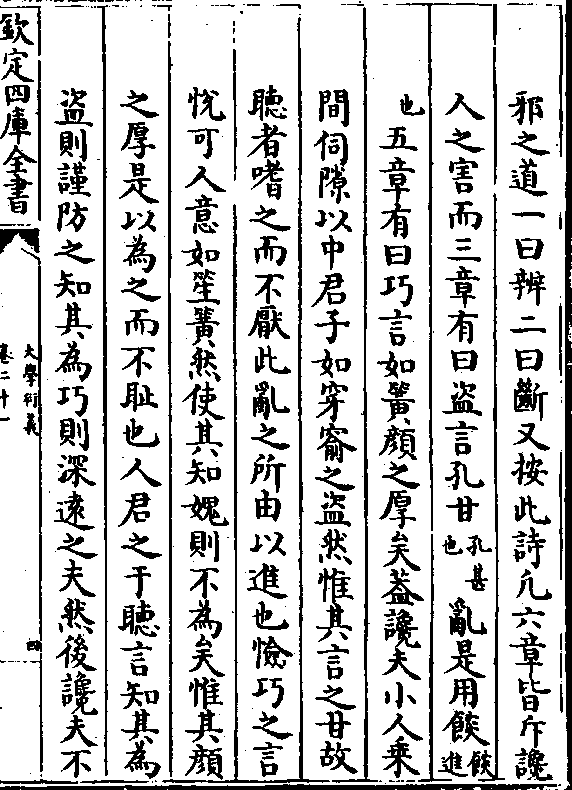 邪之道一曰辨二曰斷又按此詩凡六章皆斥讒
人之害而三章有曰盜言孔甘孔甚也亂是用餤餤進
也五章有曰巧言如簧顔之厚矣葢讒夫小人乗
間伺隙以中君子如穿窬之盜然惟其言之甘故
聽者嗜之而不厭此亂之所由以進也憸巧之言
悅可人意如笙簧然使其知媿則不為矣惟其顔
之厚是以為之而不耻也人君之于聽言知其為
盜則謹防之知其為巧則深逺之夫然後讒夫不
欽定四庫全書
大學衍義
卷二十一
四